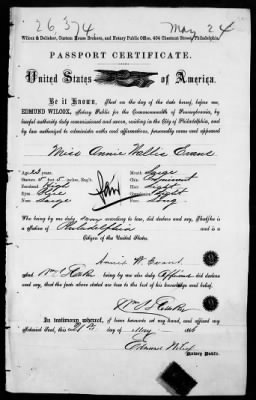 26374 May 24
Wilcox & Delleker, Custom House Brokers, and Notary Public Office, 404 Chestnut Street, Philadelphia.
PASSPORT CERTIFICATE.
United States of America.
Be it Known, That on the day of the date hereof, before me,
EDMUND WILCOX, Notary Public for the Commonwealth of Pennsylvania, by
lawful authority duly commissioned and sworn, residing in the City of Philadelphia, and
by law authorized to administer oaths and affirmations, personally came and appeared
Miss Annie Wallis Evans
Age, years.
Stature 5 feet 5 inches, Eng.
Forehead High
Eyes Blue
Nose Large
Fair
Mouth Large
Chin Prominent
Hair Light
Complexion Light
Face Long
Who being by me duly sworn according to law, did declare and say, That she is
a native of Philadelphia and a
Citizen of the United States.
Annie W. Evans
And Wm being by me also duly Affirmed did declare and say,
that the facts above recited are true to the best of his knowledge and belief.
Wm
In testimony whereof, I have hereunto set my hand, and affixed my
Notarial Seal, this day of May 186
Edmund Wilcox
Notary Public.